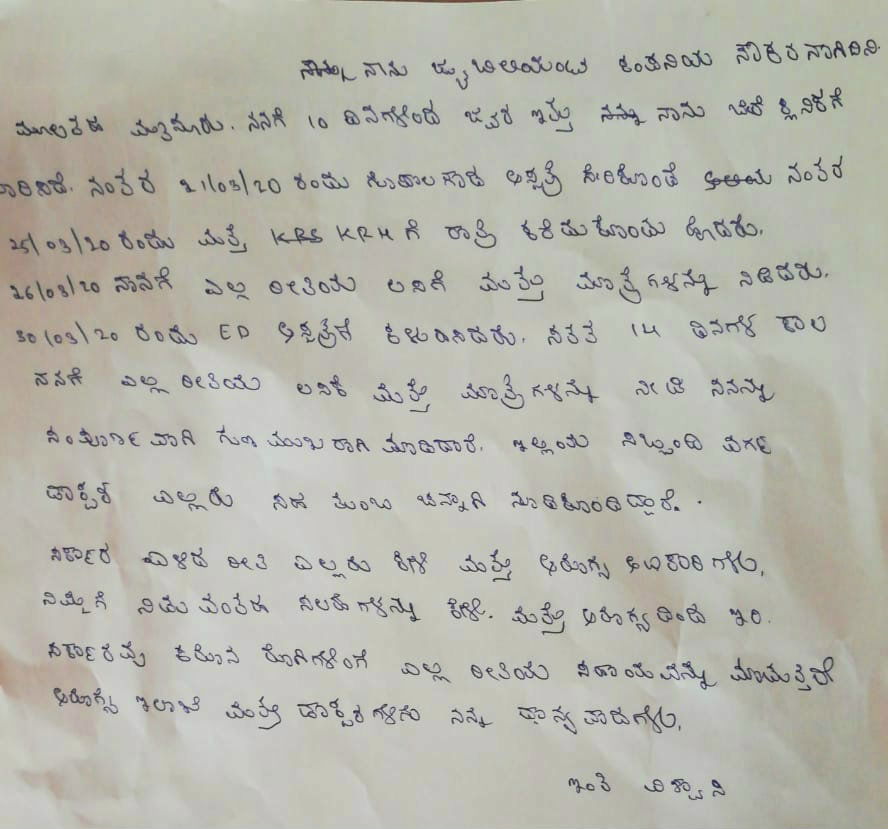 ನಾನು ಜ್ಯುಬಿಲಿಯಂಟ ಕಂಪನಿಯ ನೌಕರನಾಗಿದಿನಿ.
ನನಗೆ 10 ದಿನಗಳಿಂದ ಜ್ವರ ಇತ್ತು ನಾನು ಕ್ಲಿನಿಕಗೆ
ನಂತರ 21/03/20 ರಂದು ಆಸ್ಪತ್ರೆ ಸೇರಿಕೊಂಡೆ ನಂತರ
25/03/20 ರಂದು ಮತ್ತೆ KRH ಗೆ ರಾತ್ರಿ ಕರೆದುಕೊಂಡು ಹೋದರು.
26/03/20 ನಾನಗೆ ಎಲ್ಲ ರೀತಿಯ ಮತ್ತು ಮಾತ್ರೆಗಳನ್ನು ನಿಡಿದರು.
30/03/20 ರಂದು ED ಆಸ್ಪತ್ರೆಗೆ ಕಳುಹಿಸಿದರು. ಸತತ 14 ದಿನಗಳ ಕಾಲ
ನನಗೆ ಎಲ್ಲ ರೀತಿಯ ಮತ್ತು ಮಾತ್ರೆಗಳನ್ನು ನೀಡಿ ನನನ್ನು
ಸಂಪೂರ್ಣವಾಗಿ ಗುಣಮುಖರಾಗಿ ಮಾಡಿದಾರೆ. ಇಲ್ಲಿಯ ಸಿಬ್ಬಂದಿ ವರ್ಗ
ಡಾಕ್ಟರ ಎಲ್ಲರು ಸಹ ತುಂಬ ಚನ್ನಾಗಿ ನೊಡಿಕೊಂಡಿದ್ದಾರೆ.
ಸರ್ಕಾರ ಹೇಳಿದ ರೀತಿ ಎಲ್ಲರು ಕೇಳಿ ಮತ್ತು ಆರೋಗ್ಯ ಅಧಿಕಾರಿಗಳು,
ನಿಮ್ಮಗೆ ನಿಡುವಂತಹ ಸಲಹೆಗಳನ್ನು ಕೇಳಿ. ಮತ್ತು ಆರೋಗ್ಯದಿಂದ ಇರಿ.
ಸರ್ಕಾರವು ಕರೋನ ರೋಗಿಗಳಿಗೆ ಎಲ್ಲ ರೀತಿಯ ಸಹಾಯವನ್ನು ಮಾಡುತ್ತಿದೆ
ಆರೋಗ್ಯ ಇಲಾಖೆ ಮತ್ತು ಡಾಕ್ಟರಗಳಿಗು ನನ್ನ ಧಾನ್ಯವಾದಗಳು,
ಇಂತಿ